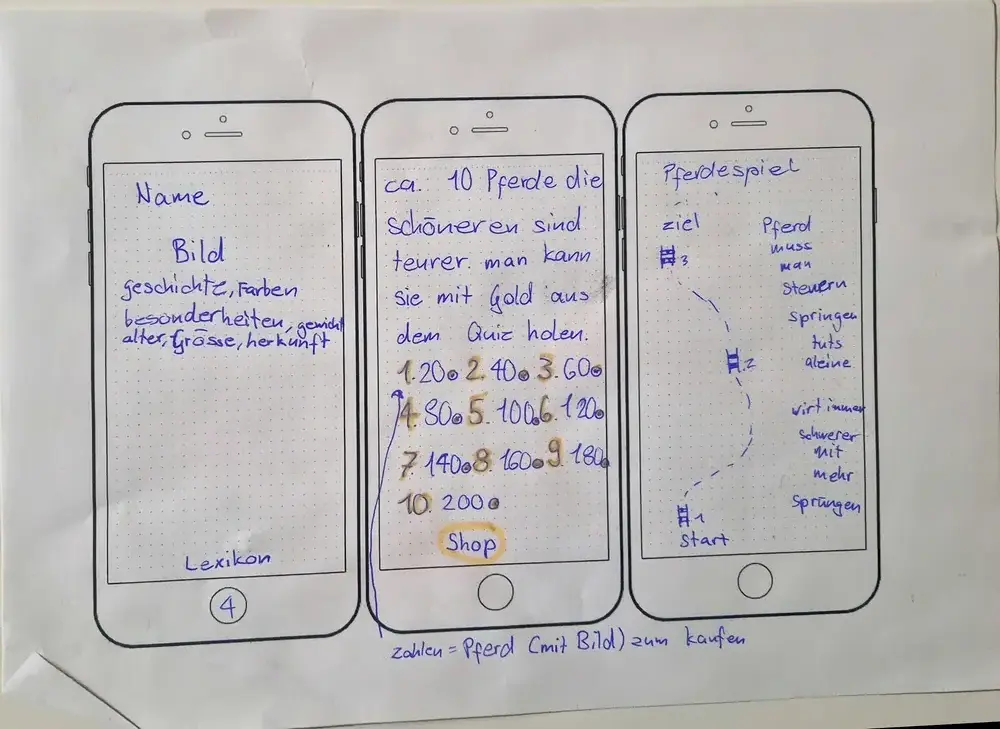 Name
Bild
geschichte, Farben
besonderheiten, gewicht
alter, Grösse, herkunft
Lexikon
4
ca. 10 Pferde die
schöneren sind
teurer. man kann
sie mit Gold aus
dem Quiz holen.
1. 20 2. 40 3. 60
4. 80 5. 100 6. 120
7. 140 8. 160 9. 180
10. 200
Shop
Pferdespiel
ziel
3
2
1
Start
Pferd
muss
man
steuern
springen
tuts
aleine
wirt immer
schwerer
mit
mehr
Sprüngen
zahlen = Pferd (mit Bild) zum kaufen